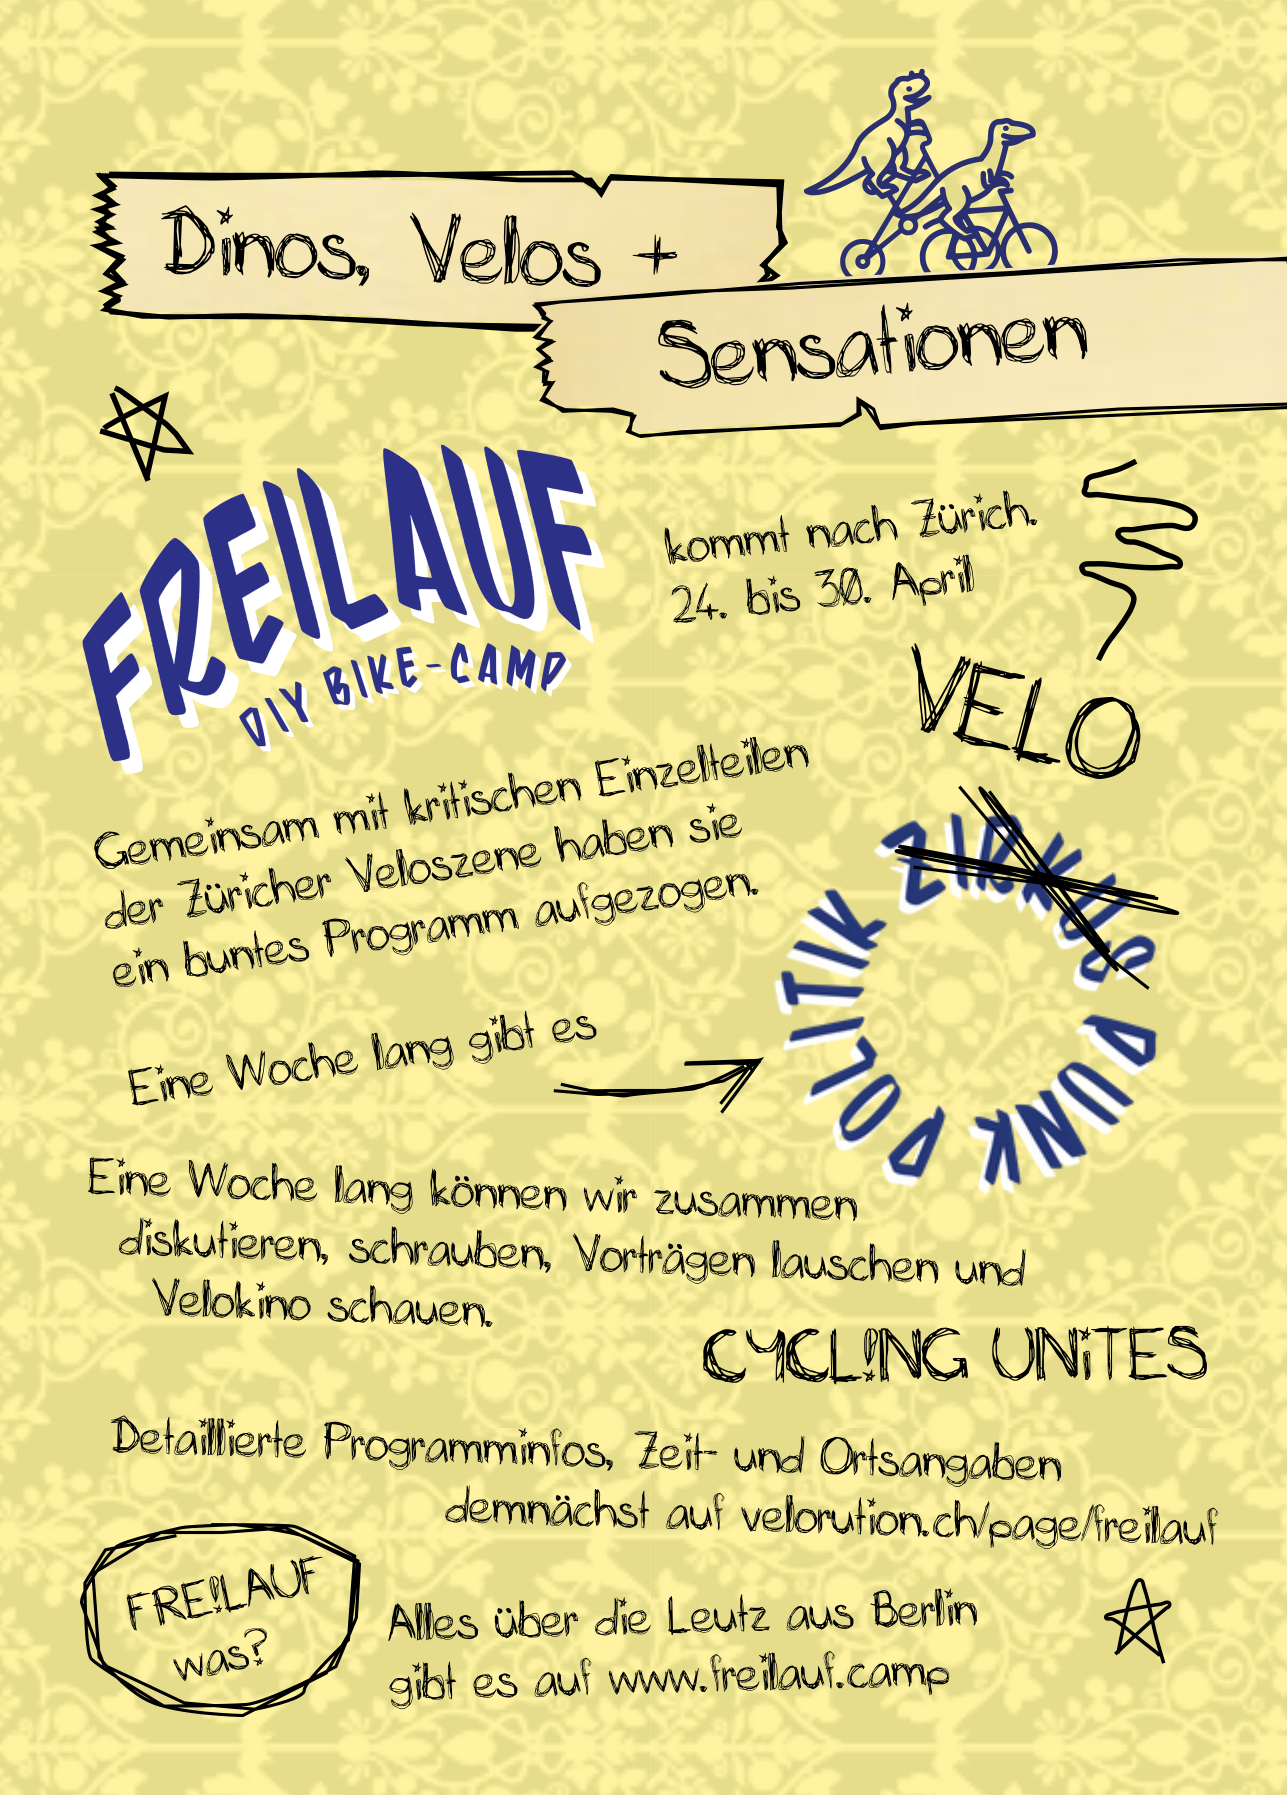 Dinos, Velos +
Sensationen
FREILAUF
DIY BIKE-CAMP
kommt nach Zürich.
24. bis 30. April
Gemeinsam mit kritischen Einzelteilen
der Züricher Veloszene haben sie
ein buntes Programm aufgezogen.
Eine Woche lang gibt es
VELO
ZIRKUS PUNK POLITIK
Eine Woche lang können wir zusammen
diskutieren, schrauben, Vorträgen lauschen und
Velokino schauen.
CYCL!NG UNiTES
Detaillierte Programminfos, Zeit- und Ortsangaben
demnächst auf velorution.ch/page/freilauf
FRE!LAUF
was?
Alles über die Leutz aus Berlin
gibt es auf www.freilauf.camp